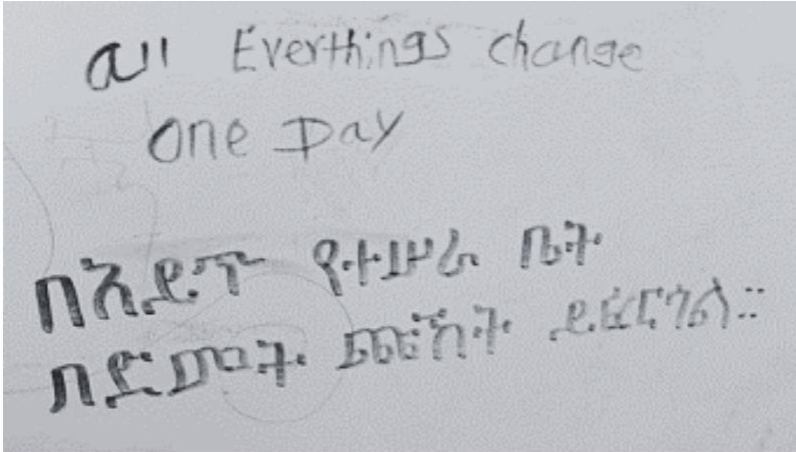 all Everthings change
one Day
በአይጥ የተሠራ ቤት
በድመት ጩኸት ይፈርሳል።